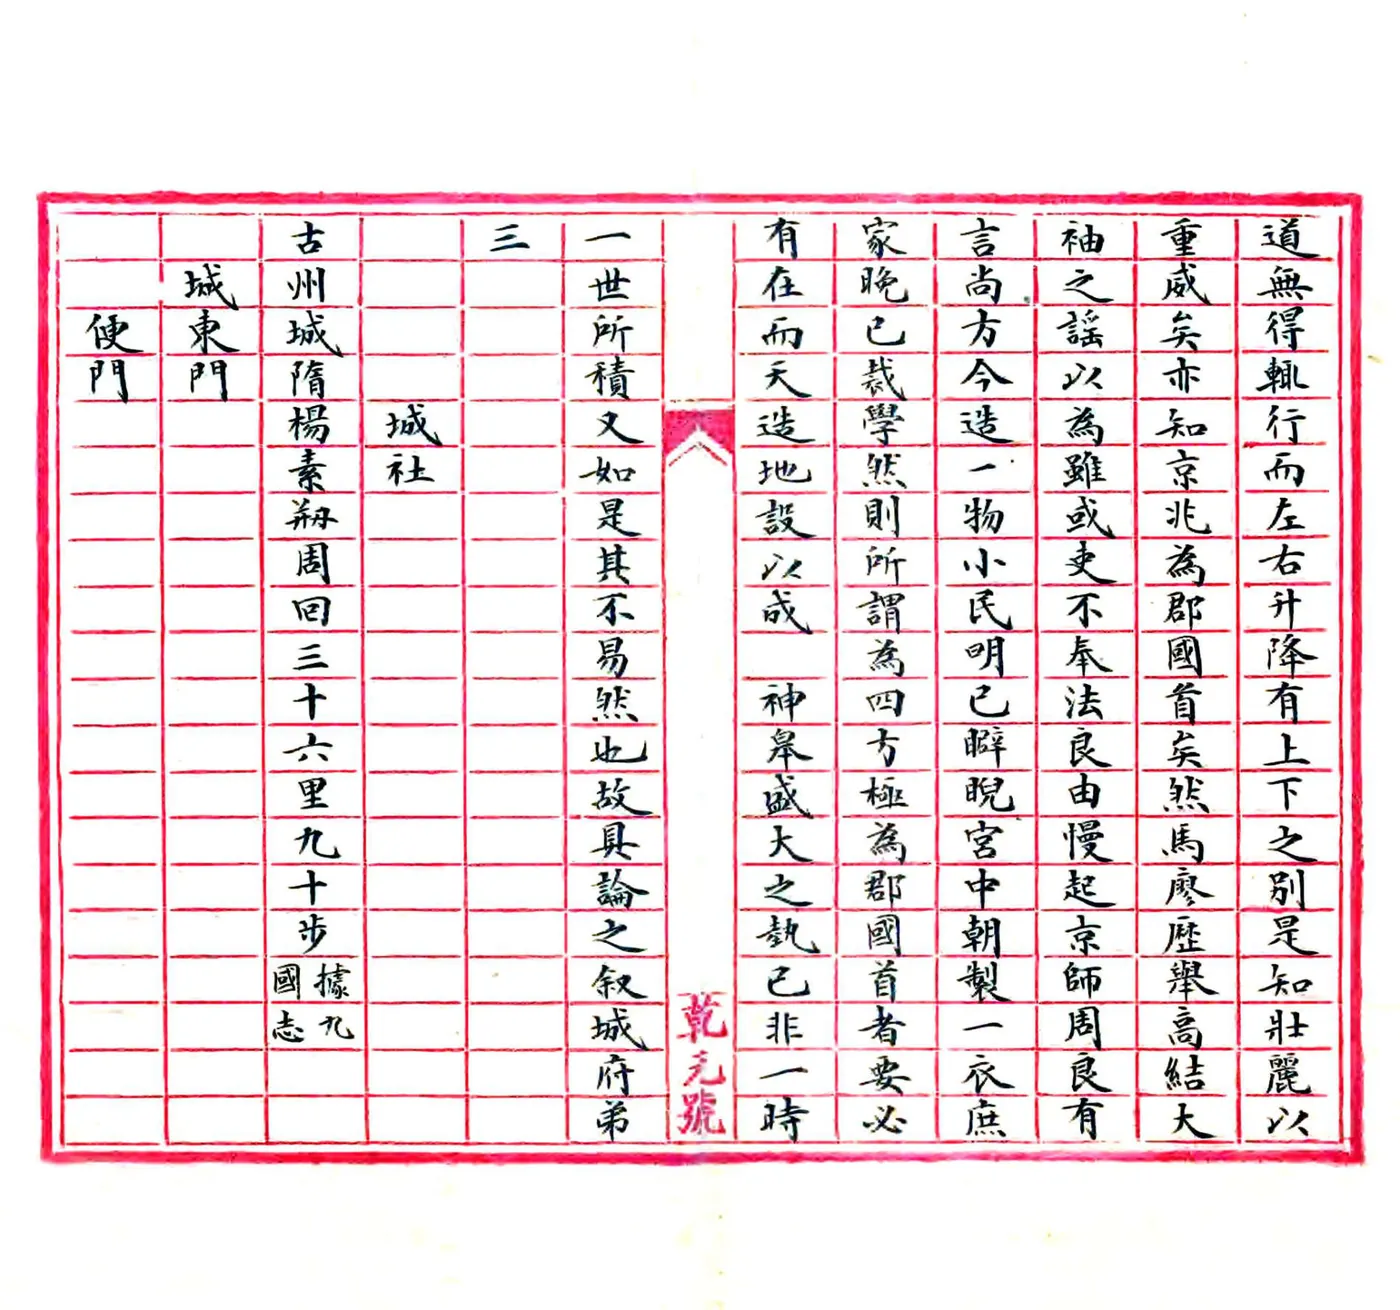 道無得輙行而左右升降有上下之別是知壯麗以
重威矣亦知京兆為郡國首矣然馬廖歷舉高結大
袖之謡以為雖或吏不奉法良由慢起京師周良有
言尚方今造一物小民明已睥睨宮中朝製一衣庶
家晚已裁學然則所謂為四方極為郡國首者要必
有在而天造地設以成 神皋盛大之埶已非一時
乾元號
一世所積又如是其不易然也故具論之叙城府弟
三
城社
古州城隋楊素剏周回三十六里九十步據九國志
城東門
便門